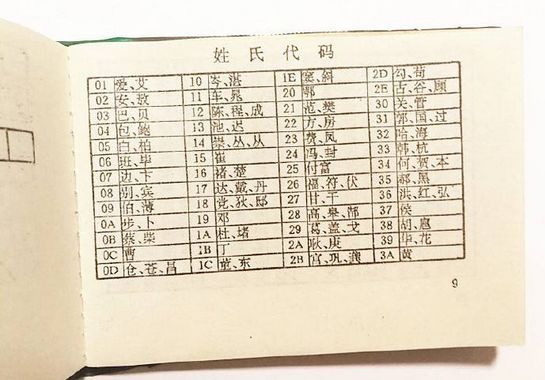 姓氏代码
01 爱、艾 10 岑、湛 1E 窦、斜 2D 勾、苟
02 安、敖 11 车、晁 20 鄂 2E 古、谷、顾
03 巴、贝 12 陈、程、成 21 范、樊 30 关、管
04 包、鲍 13 池、迟 22 方、房 31 郭、国、过
05 白、柏 14 崇、丛、从 23 费、凤 32 哈、海
06 班、毕 15 崔 24 冯、封 33 韩、杭
07 边、卞 16 褚、楚 25 付富 34 何、贺、本
08 别、宾 17 达、戴、丹 26 福、符、伏 35 郝、黑
09 伯、薄 18 党、狄、邸 27 甘、干 36 洪、红、弘
0A 步、卜 19 邓 28 高、皋、郜 37 侯
0B 蔡、柴 1A 杜、堵 29 葛、盖、戈 38 胡、扈
0C 曹 1B 丁 2A 耿、庚 39 华、花
0D 仓、苍、昌 1C 董、东 2B 宫、巩、龚 3A 黄
9